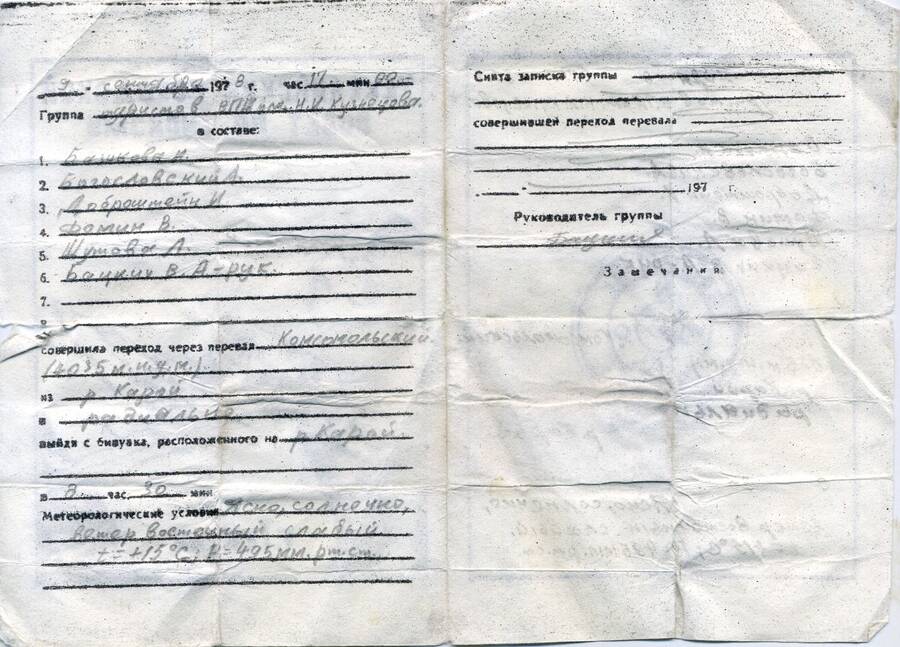 9 - сентября 1978 г. час 17 мин 00
Группа туристов ВПВ им. Н.И. Кузнецова.
в составе:
1. Башкова Н.
2. Богословский А.
3. Доброштейн И
4. Фомин В.
5. Шутова Л.
6. Бацких В. А-рук.
7.
8
совершила переход через перевал Комсомольский
(4035 м.н.у.м.)
из р. Карой
в радиально
выйдя с бивуака, расположенного на р Карой
в 8 час 30 мин
Метеорологические условия Ясно, солнечно,
ветер восточный слабый
t = +15°C; P = 495 мм. рт.ст.
Снята записка группы
совершившей переход перевала
. - 197 г.
Руководитель группы
Замечания